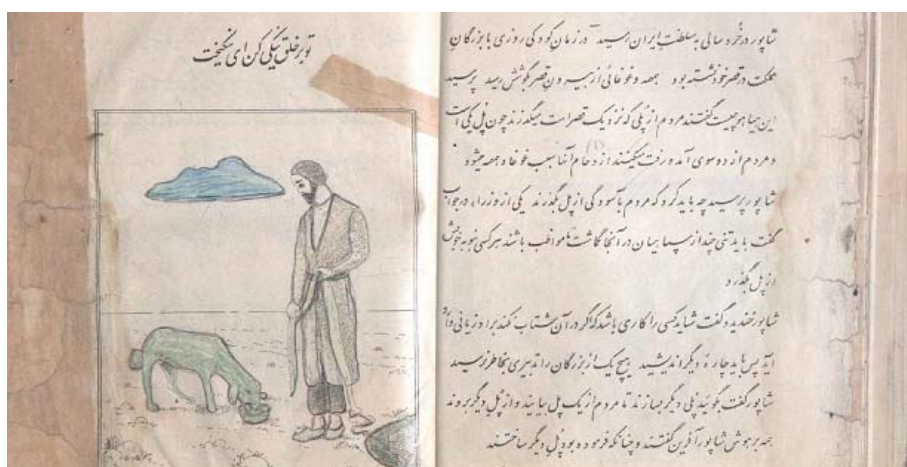 شاپور در خُرد سالی به سلطنت ایران رسید در زمان کودکی روزی با بزرگان
مملکت در قصر خود نشسته بود همهمه و غوغائی از بیرون قصر بگوشش رسید پرسید
این هیاهو چیست گفتند مردم از پُلی که نزدیک قصر است میگذرند چون پل یکی است
و مردم از دو سوی آمد و رفت میکنند ازدحام (۱) آنها سبب غوغا و همهمه میشود
شاپور پرسید چه باید کرد که مردم بآسودگی از پل بگذرند یکی از وزراء در جواب
گفت باید تنی چند از سپاهیان در آنجا گماشت تا مواظب باشند هر کسی بنوبه خویش
از پل بگذرد
شاپور خندید و گفت شاید کسی را کاری باشد که اگر در آن شتاب نکند بر او زیانی وارد
آید پس باید چارهٔ دیگر اندیشید هیچ یک از بزرگان را تدبیری بخاطر نرسید
شاپور گفت بگوئید پلی دیگر بسازند تا مردم از یک پل بیایند و از پل دیگر بروند
همه بر هوش شاپور آفرین گفتند و چنانکه فرموده بود پل دیگر ساختند
تو بر خلق نیکی کن ای نیکبخت